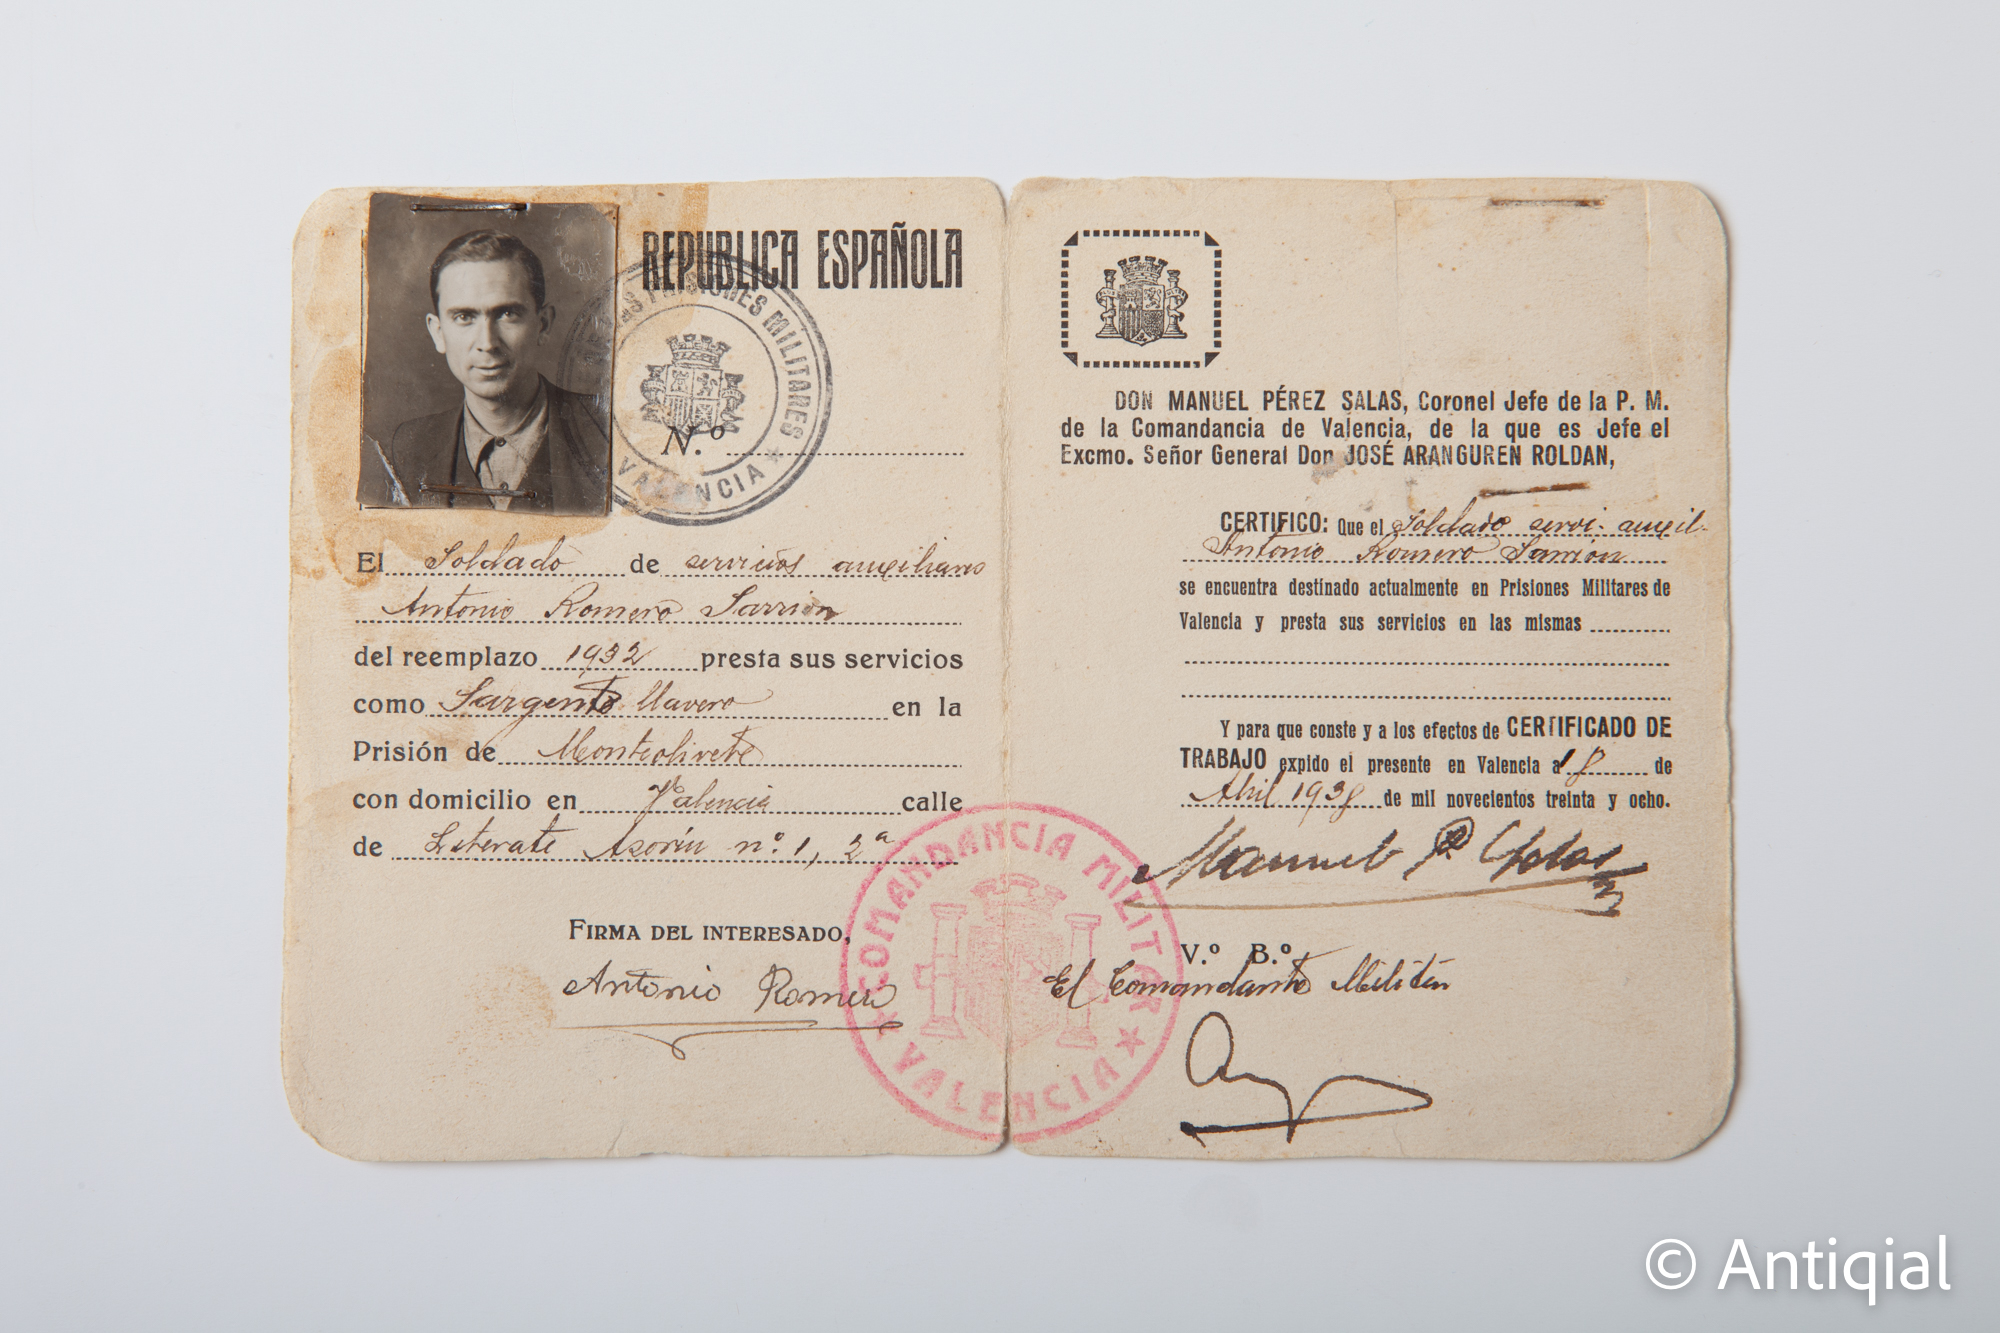 REPUBLICA ESPAÑOLA
PRISIONES MILITARES
VALENCIA
N.º
El Soldado de servicios auxiliares
Antonio Romero Sarrion
del reemplazo 1932 presta sus servicios
como Sargento llavero en la
Prisión de Monteolivete
con domicilio en Valencia calle
de Literato Azorín nº. 1, 2ª
FIRMA DEL INTERESADO,
Antonio Romero
COMANDANCIA MILITAR
VALENCIA
DON MANUEL PÉREZ SALAS, Coronel Jefe de la P. M.
de la Comandancia de Valencia, de la que es Jefe el
Excmo. Señor General Don JOSÉ ARANGUREN ROLDAN,
CERTIFICO: Que el Soldado servi. auxil.
Antonio Romero Sarrión
se encuentra destinado actualmente en Prisiones Militares de
Valencia y presta sus servicios en las mismas
Y para que conste y a los efectos de CERTIFICADO DE
TRABAJO expido el presente en Valencia a 18 de
Abril 1938 de mil novecientos treinta y ocho.
Manuel P. Salas
V.º B.º
El Comandante Militar
© Antiqial